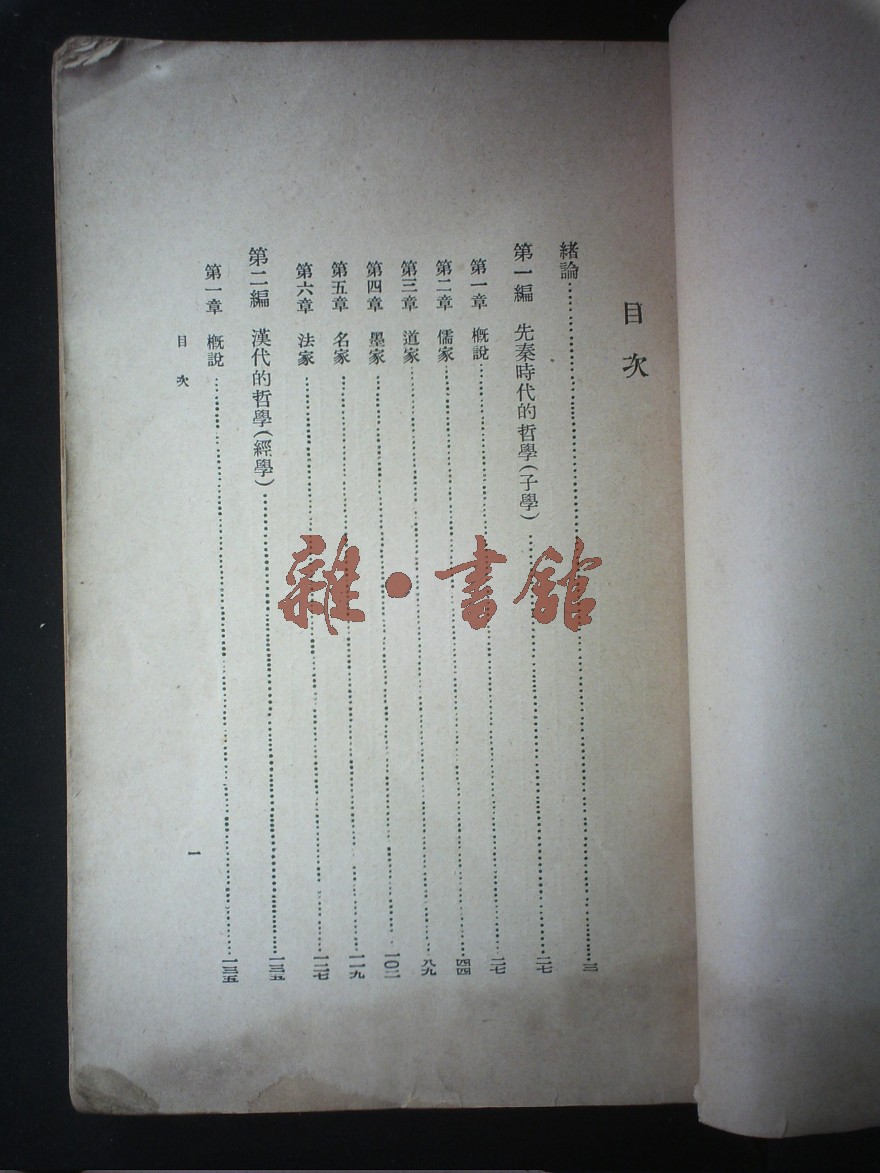 目次
緒論……三
第一編　先秦時代的哲學(子學)……二七
第一章　概說……二七
第二章　儒家……四四
第三章　道家……八九
第四章　墨家……一〇二
第五章　名家……一一九
第六章　法家……一二七
第二編　漢代的哲學(經學)……一三五
第一章　概說……一三五
目次
一
雜·書館